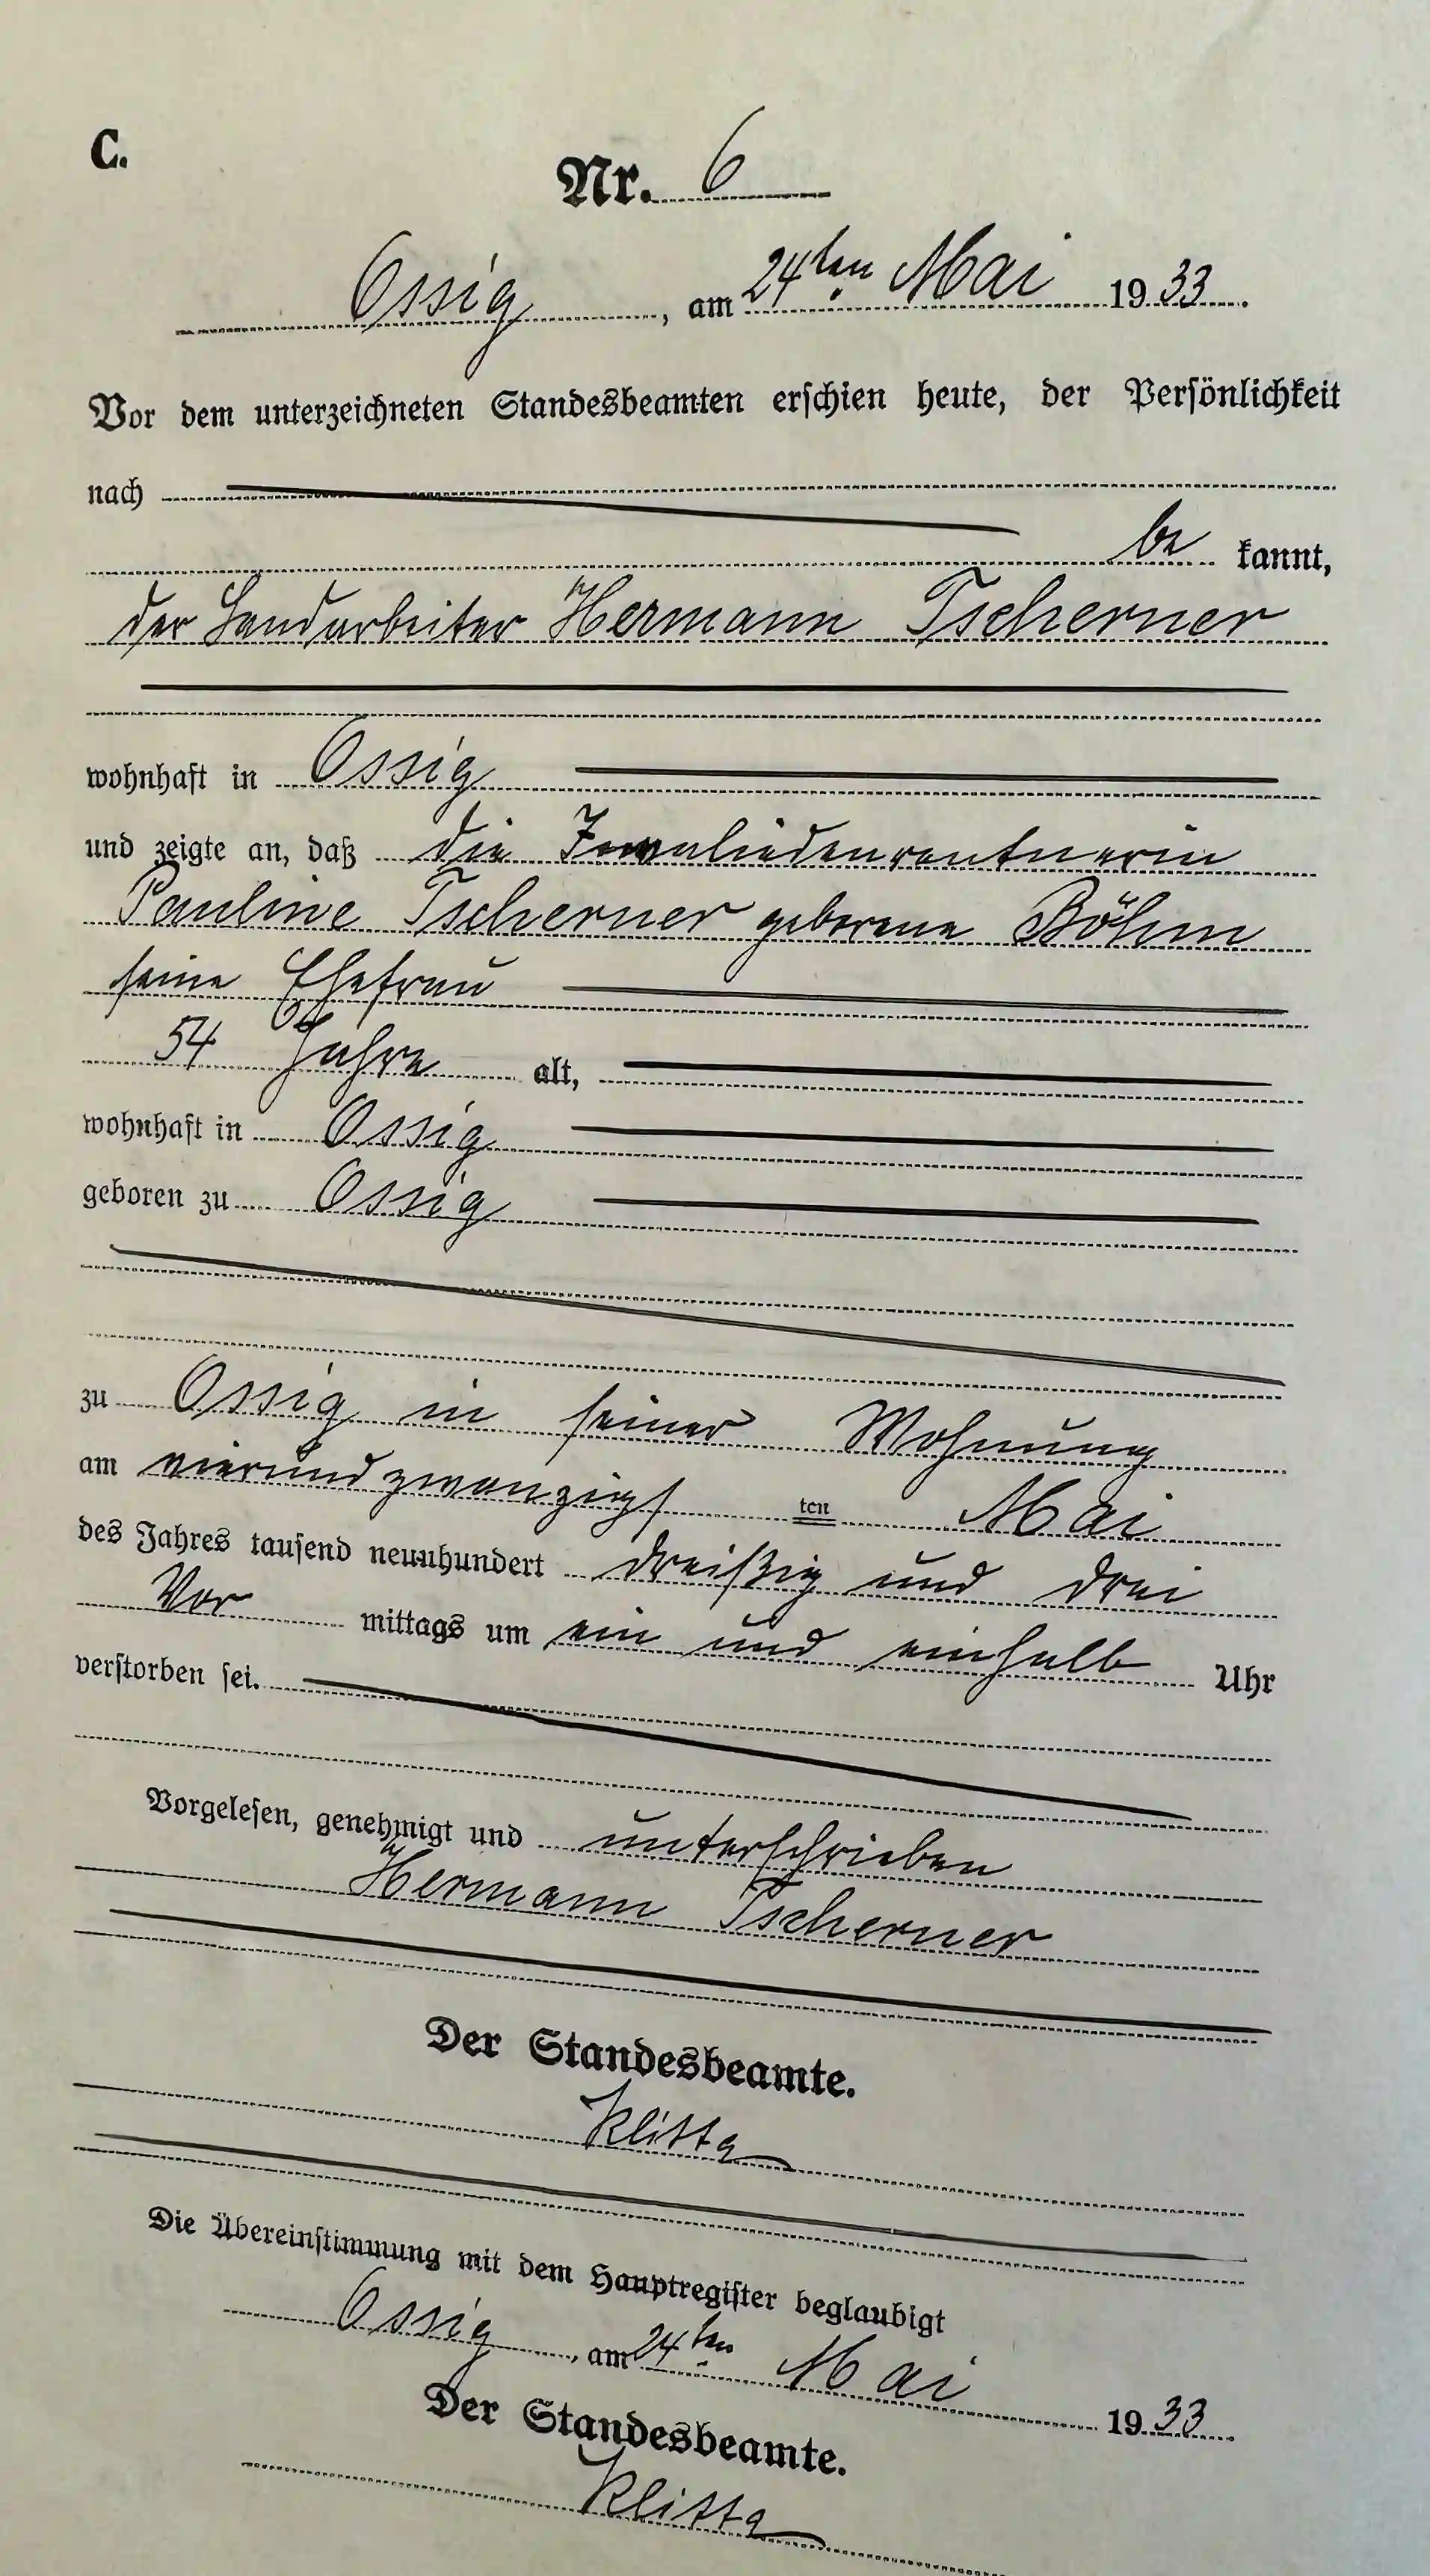 C.
Nr. 6
Ossig, am 24ten Mai 1933.
Vor dem unterzeichneten Standesbeamten erschien heute, der Persönlichkeit
nach
be kannt,
der Landarbeiter Hermann Tscherner
wohnhaft in Ossig
und zeigte an, daß die Invaliedenrentnerin
Pauline Tscherner geborene Böhm
seine Ehefrau
54 Jahre alt,
wohnhaft in Ossig
geboren zu Ossig
zu Ossig in seiner Wohnung
am vierundzwanzigsten Mai
des Jahres tausend neunhundert dreißig und drei
Vor mittags um ein und einhalb Uhr
verstorben sei.
Vorgelesen, genehmigt und unterschrieben
Hermann Tscherner
Der Standesbeamte.
Klitta
Die Übereinstimmung mit dem Hauptregister beglaubigt
Ossig, am 24ten Mai 1933.
Der Standesbeamte.
Klitta